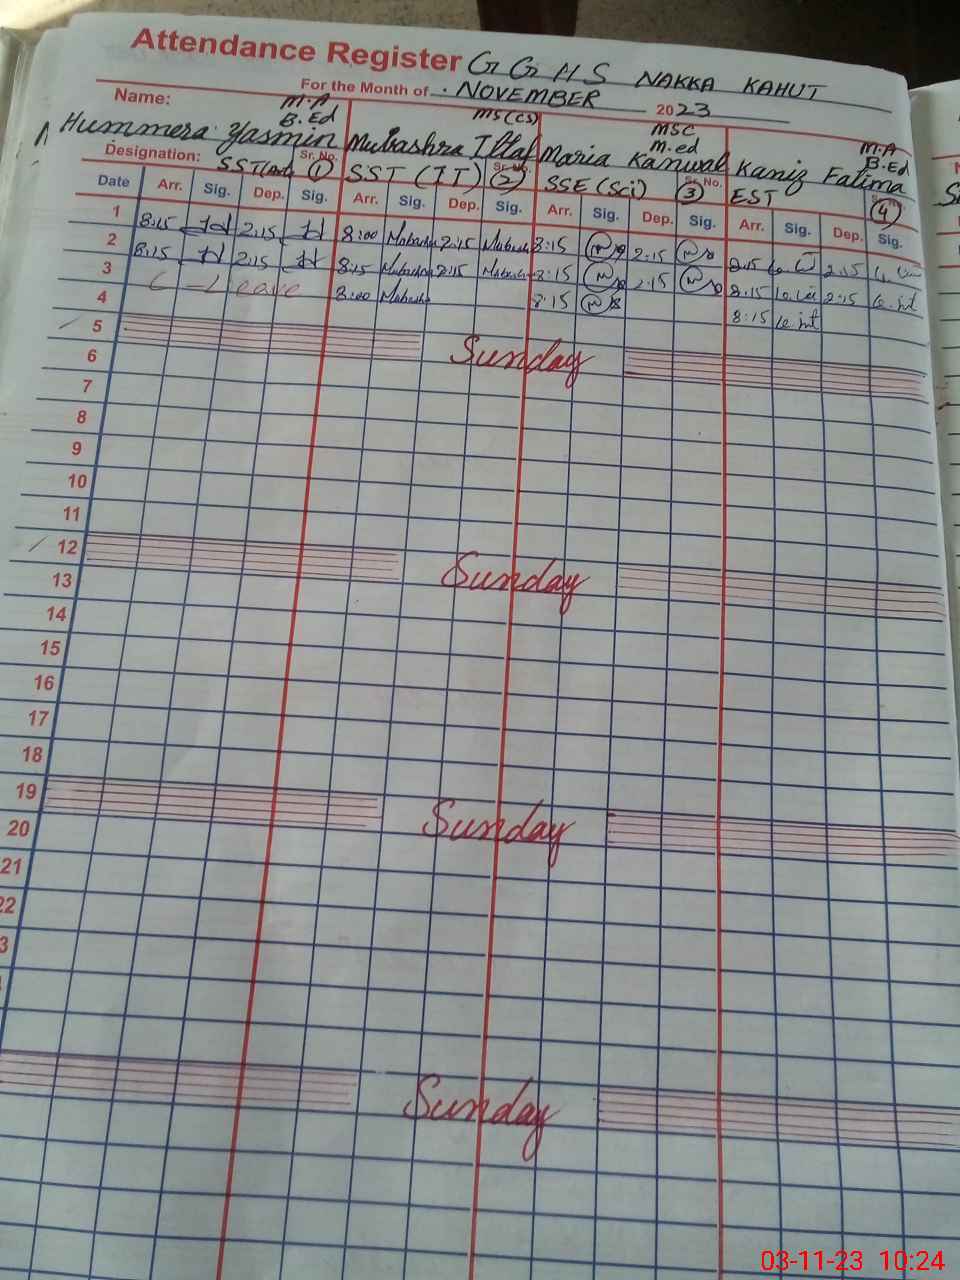 Attendance Register GGHS NAKKA KAHUT
For the Month of NOVEMBER 2023
Name: M.A B.Ed MS(CS) MSC M.ed M.A B.Ed
Hummera Yasmin Mubashra Iltaf Maria Kanwal Kaniz Fatima
Designation: SST(Art) Sr. No. 1 SST (IT) Sr. No. 2 SSE (Sci) Sr. No. 3 EST 4
Date Arr. Sig. Dep. Sig. Arr. Sig. Dep. Sig. Arr. Sig. Dep. Sig. Arr. Sig. Dep. Sig.
1 8:15 2:15 8:00 Mubashra 2:15 Mubashra 8:15 2:15 8:15 2:15
2 8:15 2:15 8:15 Mubashra 2:15 Mubashra 8:15 2:15 8:15 2:15
3 C-Leave 8:00 Mubashra 8:15 8:15
4
5 Sunday
6
7
8
9
10
11
12 Sunday
13
14
15
16
17
18
19 Sunday
20
21
22
3
Sunday
03-11-23 10:24